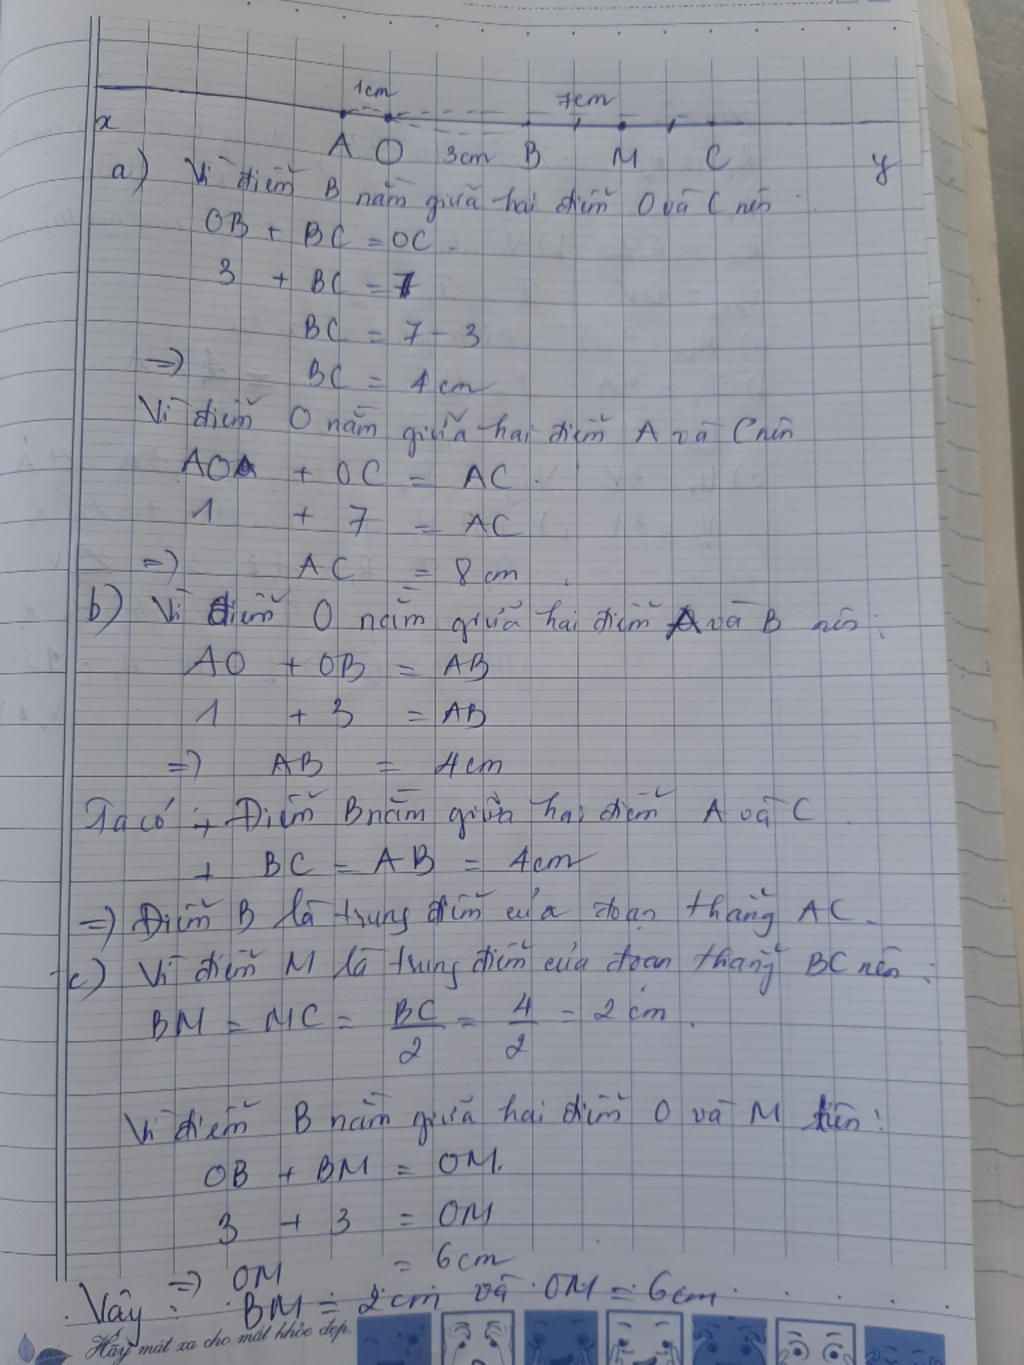 1cm 7cm
x A O 3cm B M C y
a) Vì điểm B nằm giữa hai điểm O và C nên :
OB + BC = OC.
3 + BC = 7
BC = 7 - 3
=> BC = 4 cm
Vì điểm O nằm giữa hai điểm A và C nên
AO + OC = AC.
1 + 7 = AC
=> AC = 8 cm.
b) Vì điểm O nằm giữa hai điểm A và B nên :
AO + OB = AB
1 + 3 = AB
=> AB = 4cm
Ta có : + Điểm B nằm giữa hai điểm A và C
+ BC = AB = 4cm
=> Điểm B là trung điểm của đoạn thẳng AC.
c) Vì điểm M là trung điểm của đoạn thẳng BC nên :
BM = MC = BC/2 = 4/2 = 2 cm.
Vì điểm B nằm giữa hai điểm O và M nên :
OB + BM = OM.
3 + 3 = OM
=> OM = 6cm
Vậy : BM = 2cm và OM = 6cm.
Hãy mát xa cho mắt khỏe đẹp.